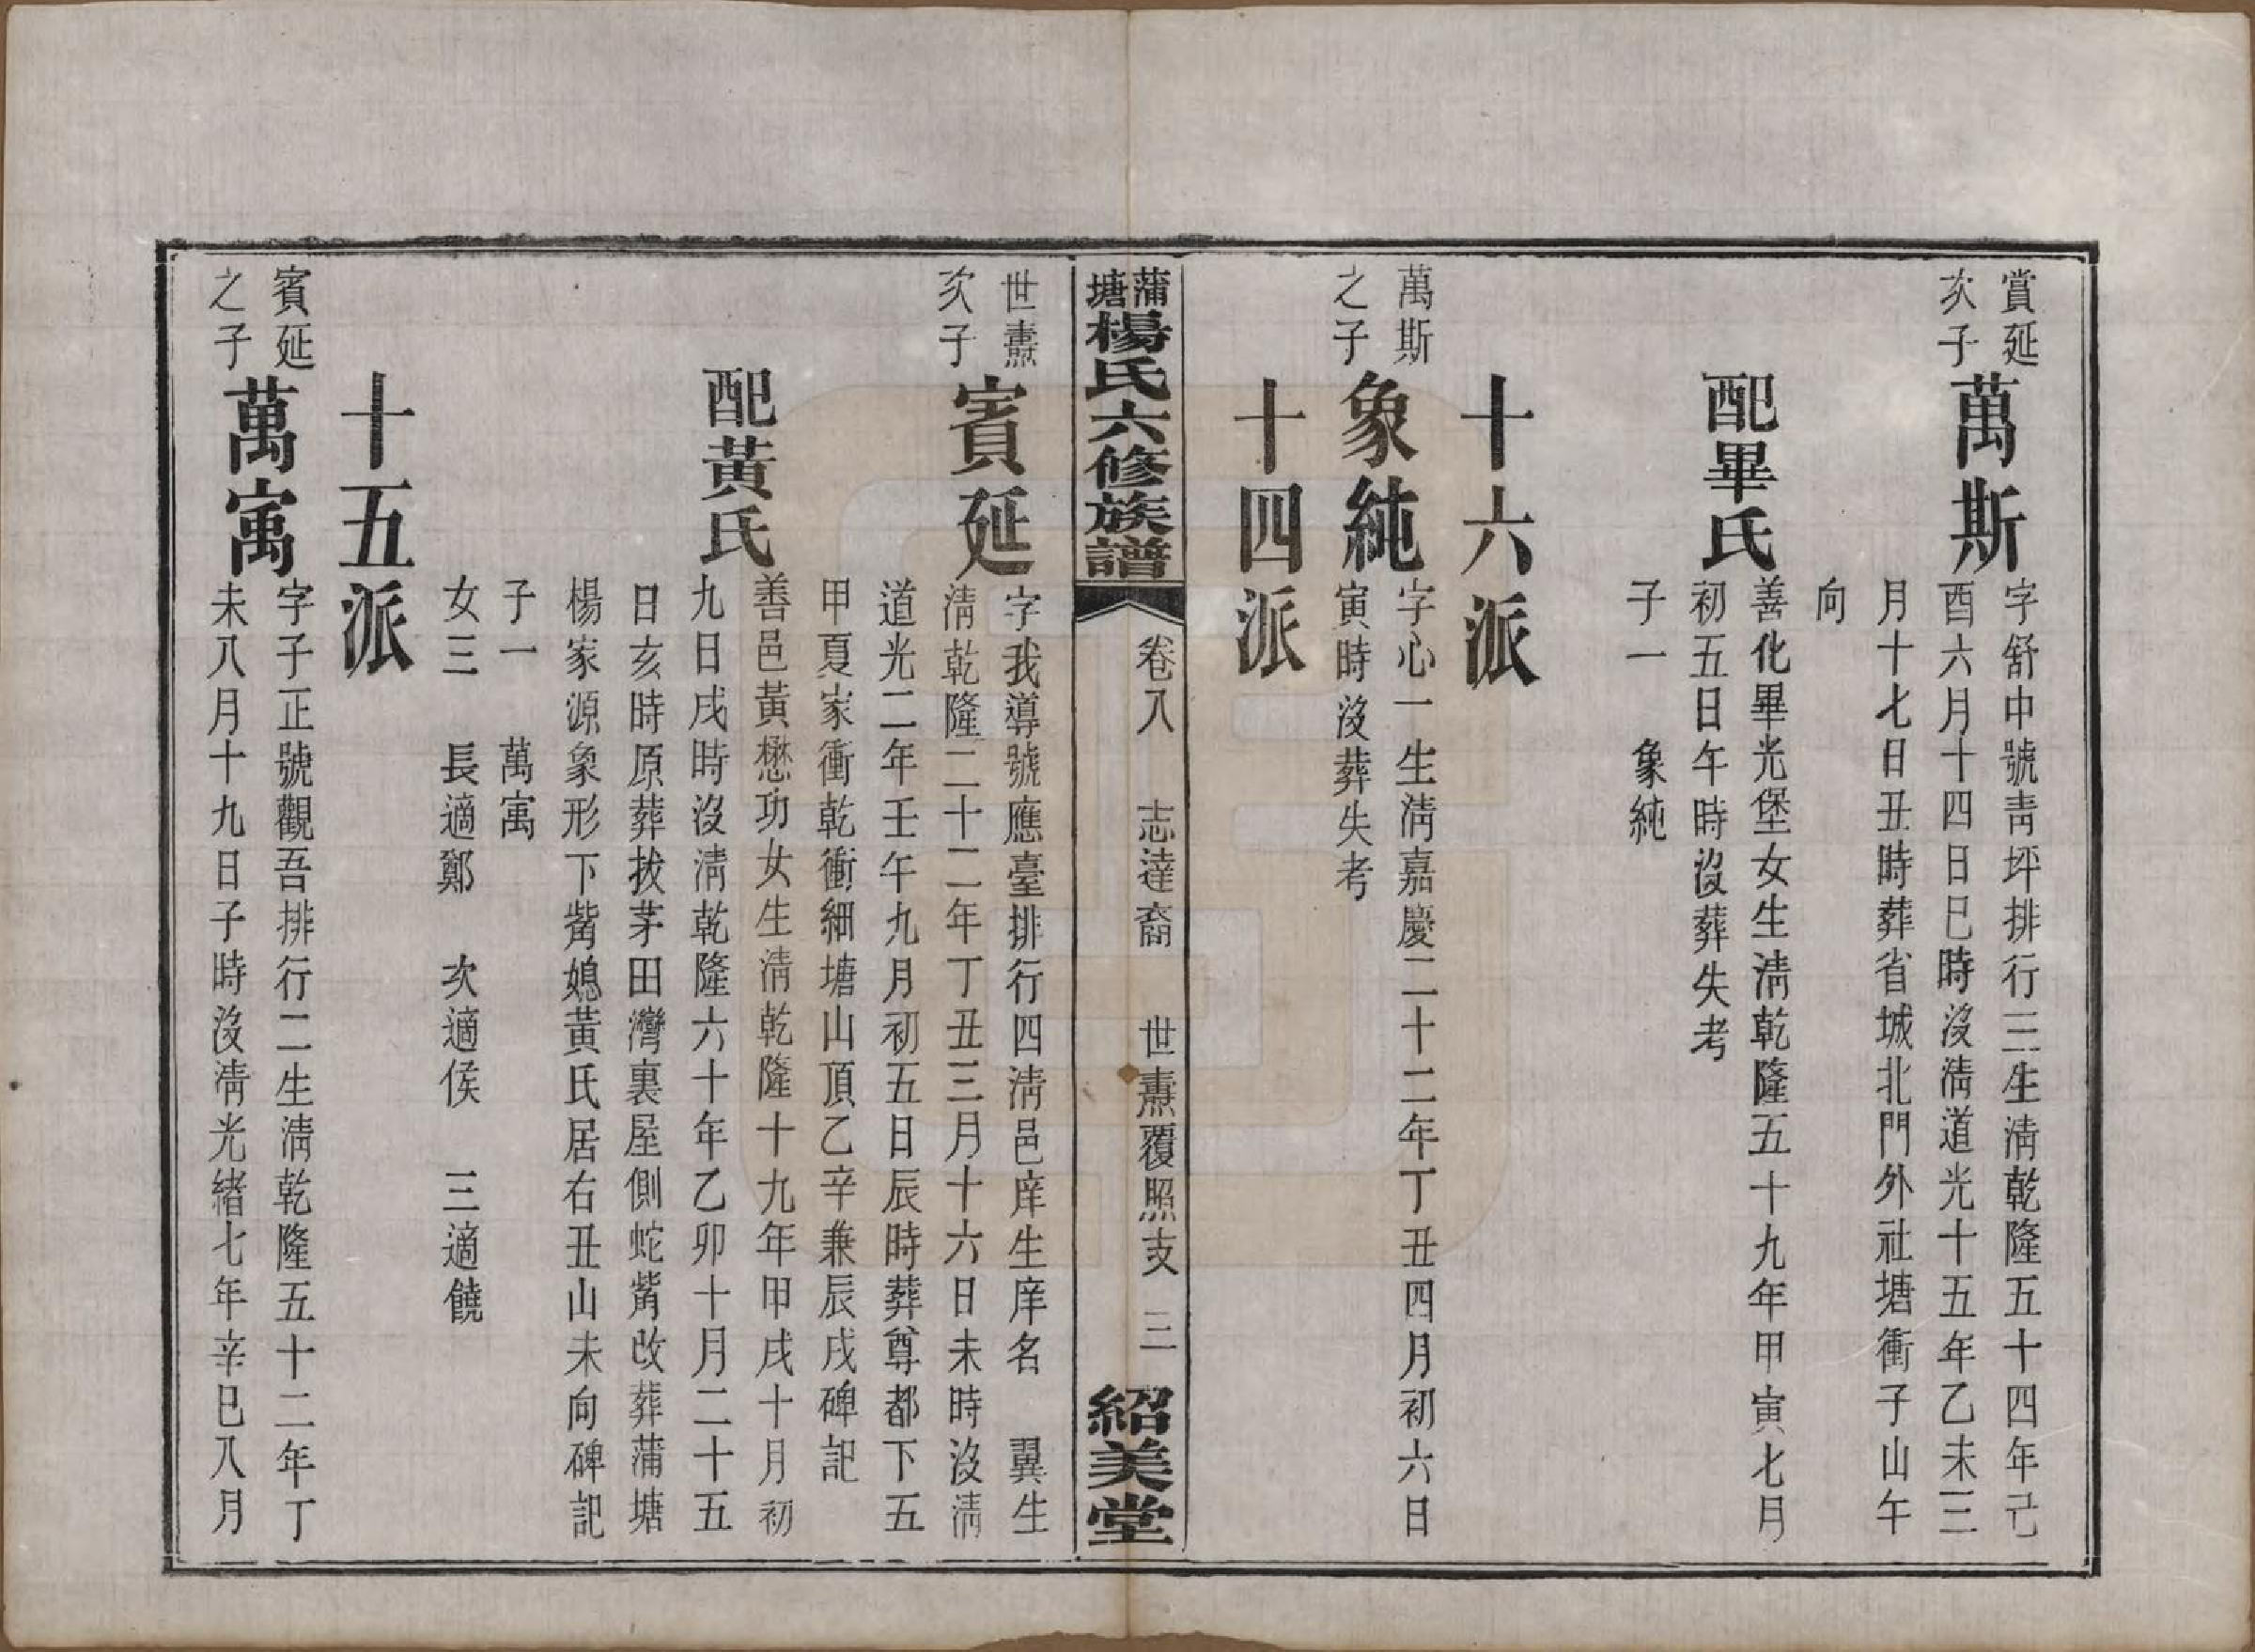 賞延
次子
萬斯
字舒中號靑坪排行三生淸乾隆五十四年己
酉六月十四日巳時沒淸道光十五年乙未三
月十七日丑時葬省城北門外社塘衝子山午
向
配畢氏
善化畢光堡女生淸乾隆五十九年甲寅七月
初五日午時沒葬失考
子一　象純
十六派
萬斯
之子
象純
字心一生淸嘉慶二十二年丁丑四月初六日
寅時沒葬失考
十四派
蒲塘楊氏六修族譜
卷八　志達裔　世燾覆照支　三
紹美堂
世燾
次子
賓延
字我導號應臺排行四淸邑庠生庠名　翼生
淸乾隆二十二年丁丑三月十六日未時沒淸
道光二年壬午九月初五日辰時葬尊都下五
甲夏家衝乾衝細塘山頂乙辛兼辰戌碑記
配黃氏
善邑黃懋功女生淸乾隆十九年甲戌十月初
九日戌時沒淸乾隆六十年乙卯十月二十五
日亥時原葬拔茅田灣裏屋側蛇觜改葬蒲塘
楊家源象形下觜媳黃氏居右丑山未向碑記
子一　萬寓
女三　長適鄭　次適侯　三適饒
十五派
賓延
之子
萬寓
字子正號觀吾排行二生淸乾隆五十二年丁
未八月十九日子時沒淸光緖七年辛巳八月